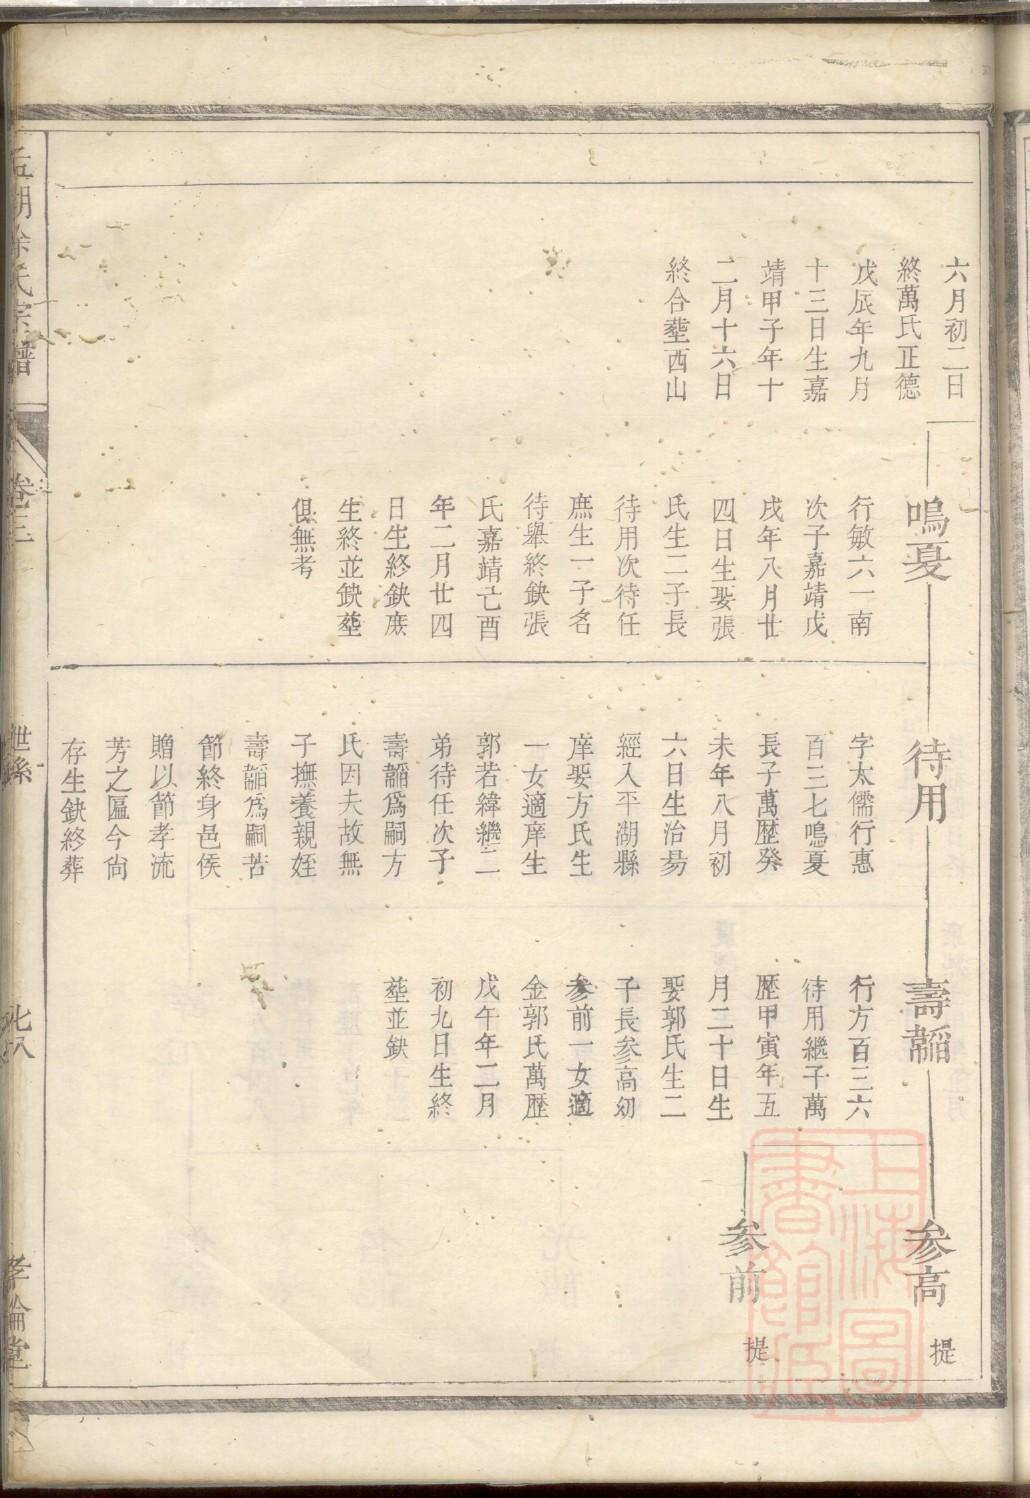 六月初二日
終萬氏正德
戊辰年九月
十三日生嘉
靖甲子年十
二月十六日
終合塟西山
鳴夏
行敏六一南
次子嘉靖戊
戌年八月廿
四日生娶張
氏生二子長
待用次待任
庶生一子名
待舉終缺張
氏嘉靖乙酉
年二月廿四
日生終缺庶
生終並缺塟
俱無考
待用
字太儒行惠
百三七鳴夏
長子萬歷癸
未年八月初
六日生治易
經入平湖縣
庠娶方氏生
一女適庠生
郭若緯繼二
弟待任次子
壽韜爲嗣方
氏因夫故無
子撫養親姪
壽韜爲嗣苦
節終身邑侯
贈以節孝流
芳之匾今尙
存生缺終葬
壽韜
行方百三六
待用繼子萬
歷甲寅年五
月二十日生
娶郭氏生二
子長參高幼
參前一女適
金郭氏萬歷
戊午年二月
初九日生終
塟並缺
參高
提
參前
提
湖徐氏宗譜
卷三
世系
孝倫堂
上海圖書館藏